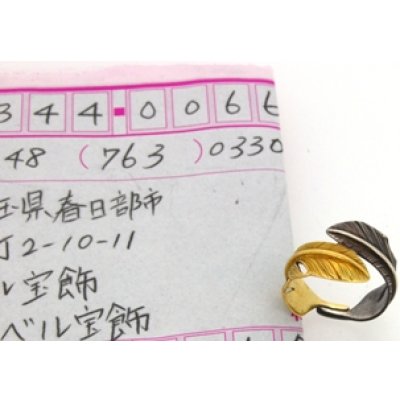 344-006
48 (763) 0330
玉県春日部市
2-10-11
ル宝飾
ベル宝飾